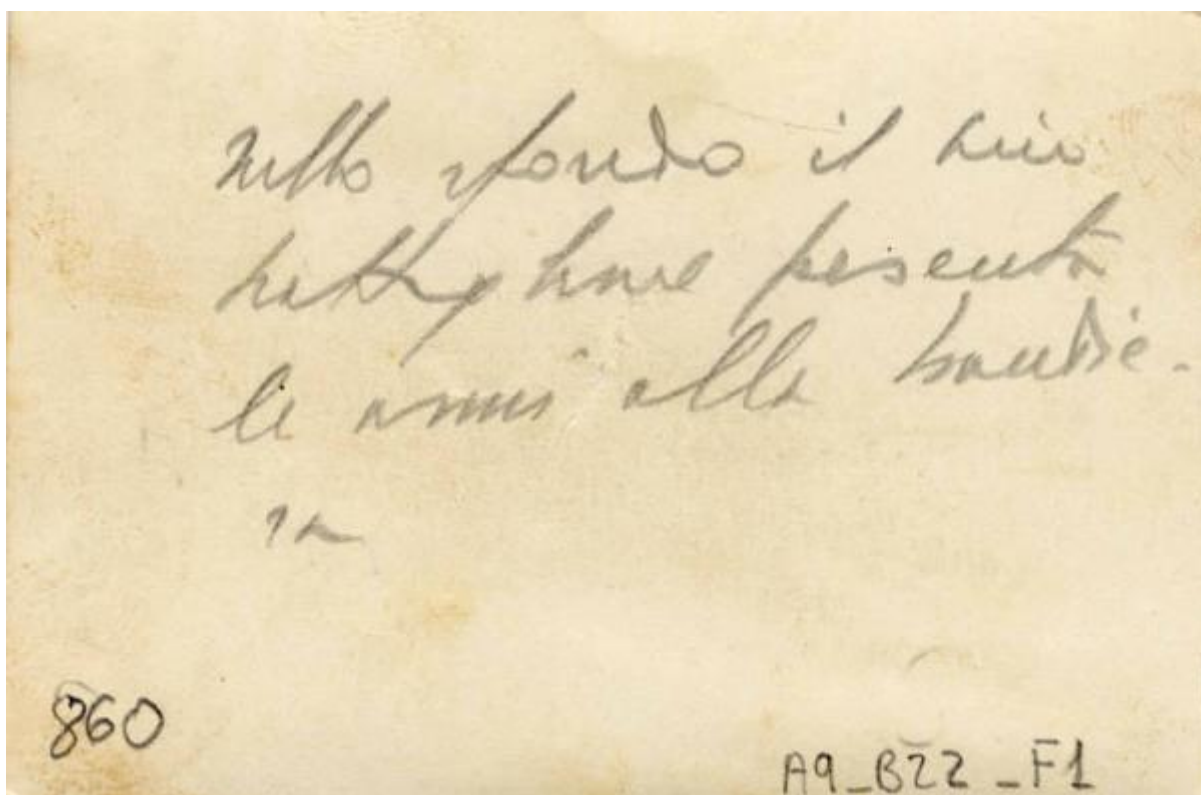 Nello sfondo il mio
battaglione presenta
le armi alla bandie-
ra
860
A9_B22_F1